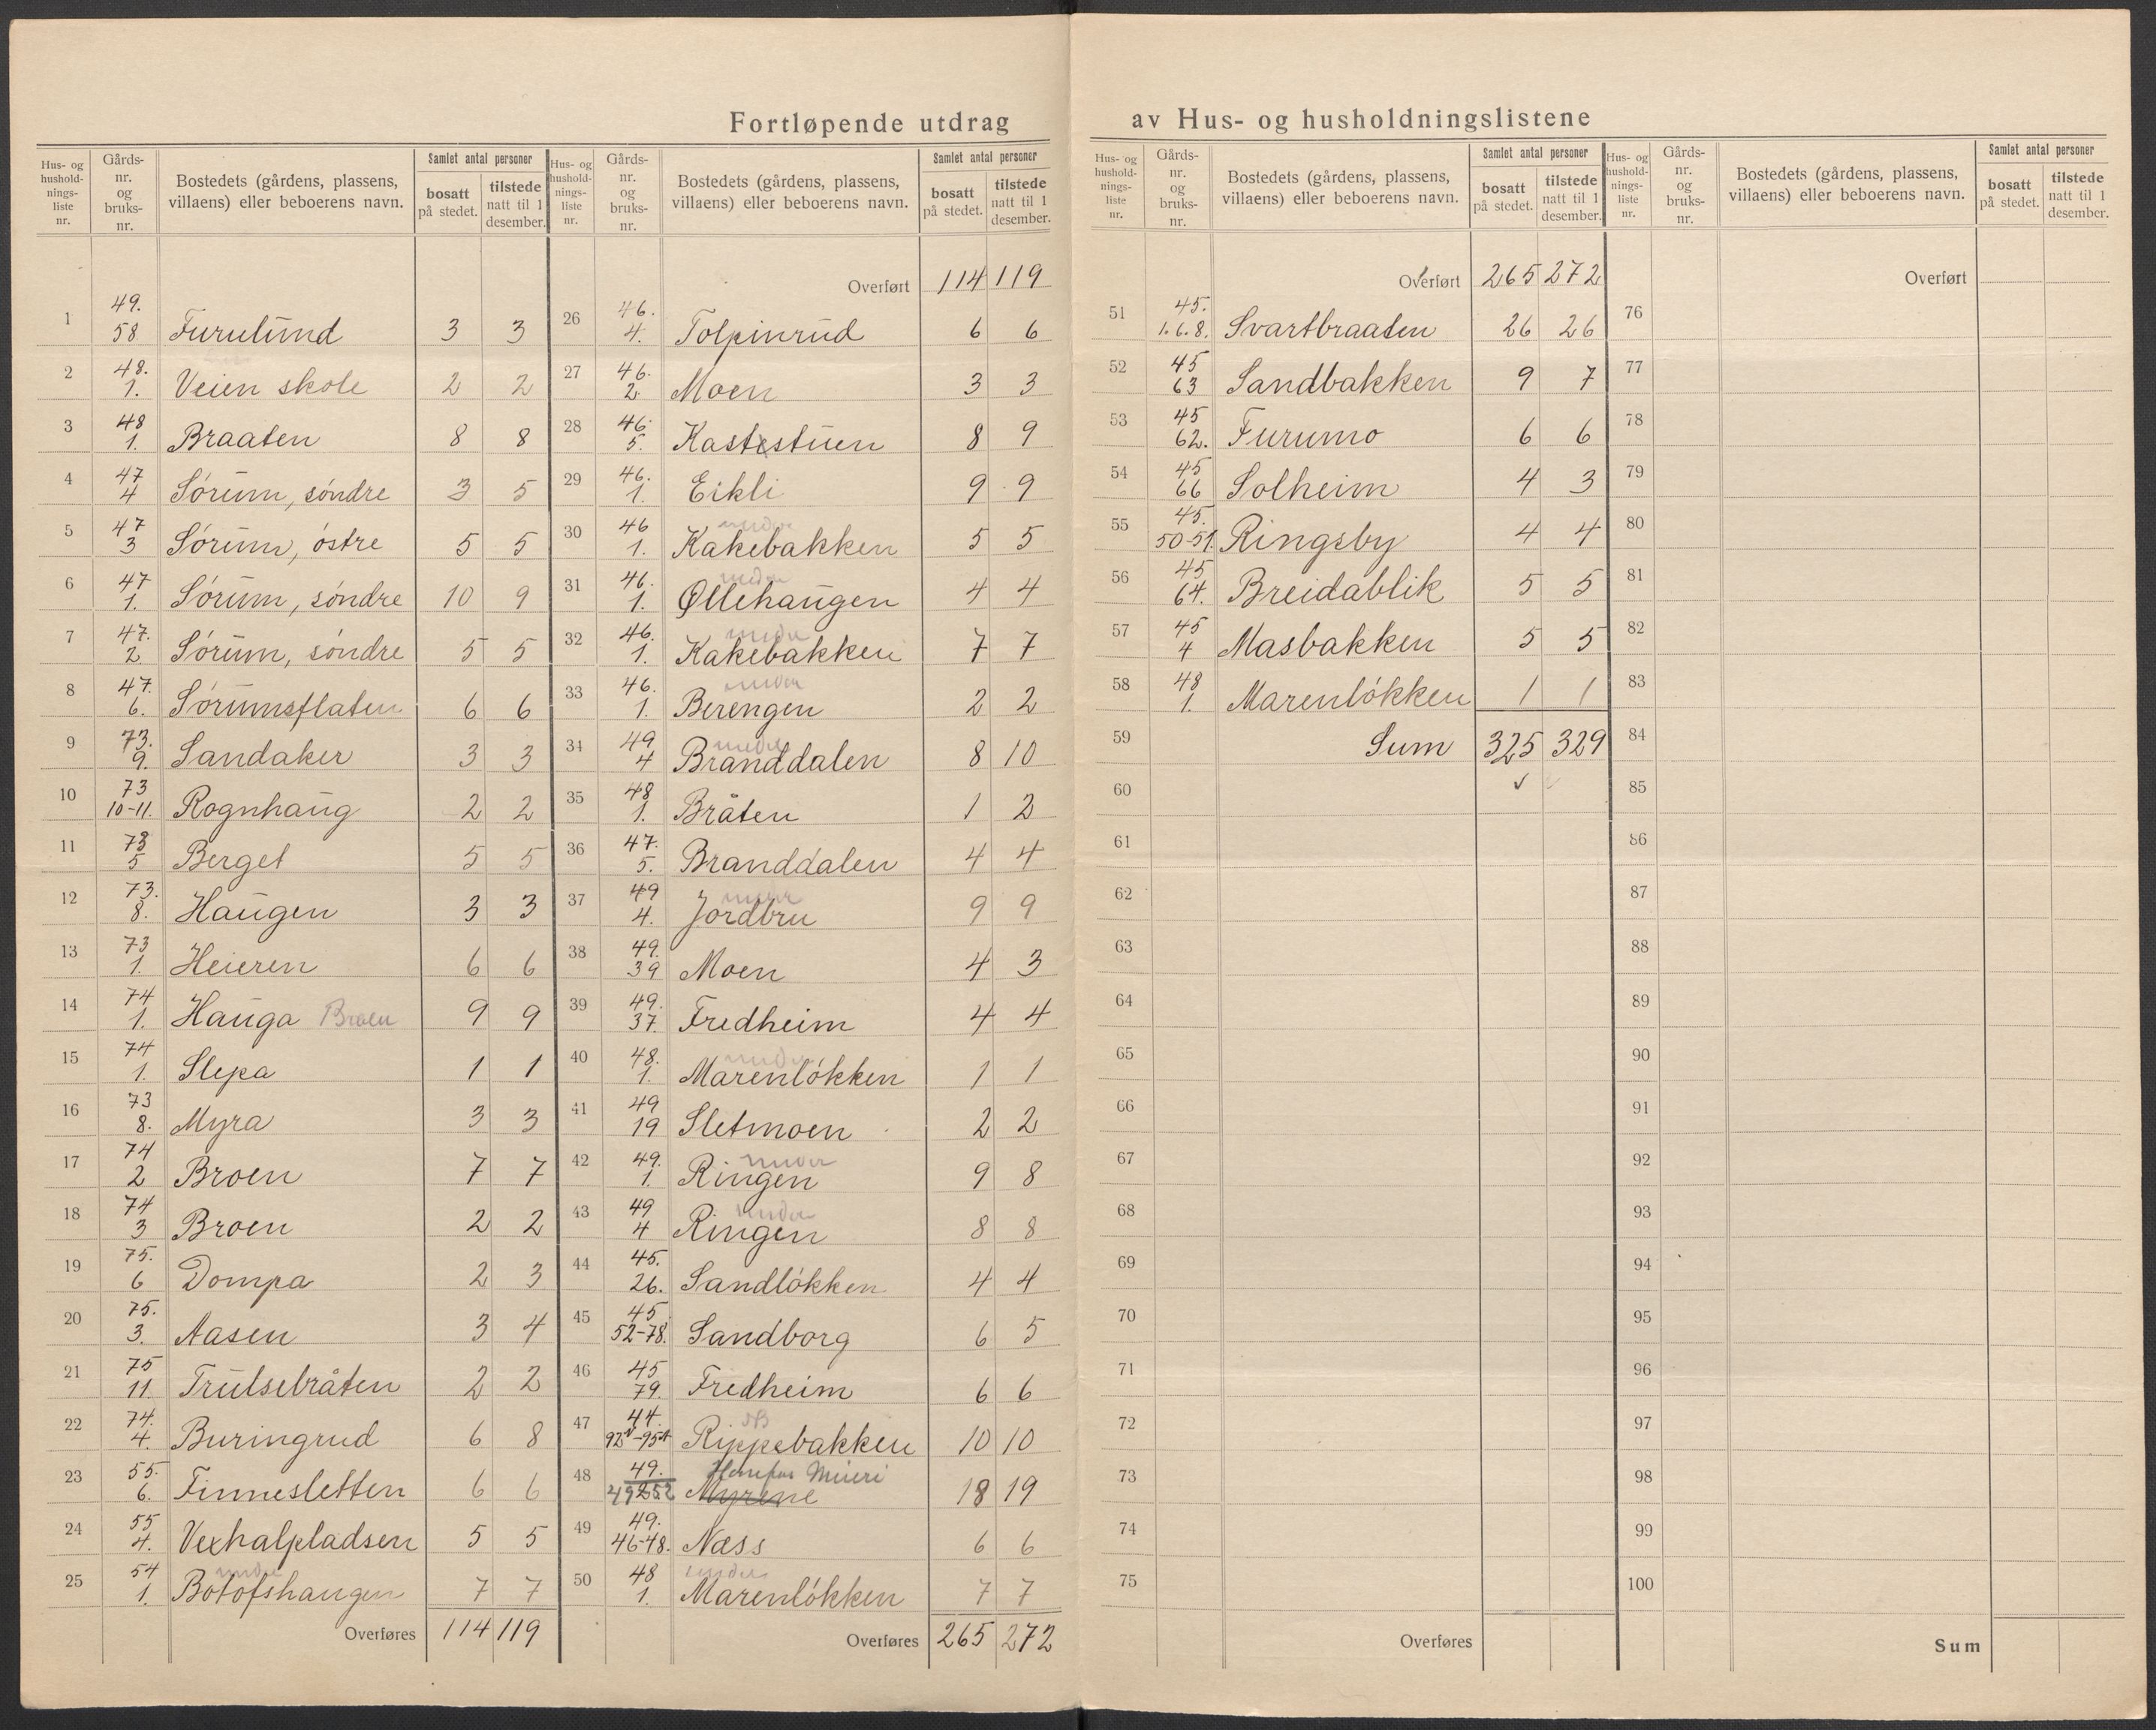 Fortløpende utdrag av Hus- og husholdningslistene
Hus- og hushold-nings-liste nr. Gårds-nr. og bruks-nr. Bostedets (gårdens, plassens, villaens) eller beboerens navn. Samlet antal personer bosatt på stedet. tilstede natt til 1 desember.
1 49. 58 Furulund 3 3
2 48. 1. Veien skole 2 2
3 48 1. Braaten 8 8
4 47 4 Sørum, søndre 3 5
5 47 3 Sørum, østre 5 5
6 47 1. Sørum, søndre 10 9
7 47. 2. Sørum, søndre 5 5
8 47. 6. Sørumsflaten 6 6
9 73. 9. Sandaker 3 3
10 73 10-11. Rognhaug 2 2
11 73 5 Berget 5 5
12 73. 8. Haugen 3 3
13 73 1. Heieren 6 6
14 74 1. Hauga Broen 9 9
15 74 1. Slepa 1 1
16 73 8. Myra 3 3
17 74 2 Broen 7 7
18 74 3 Broen 2 2
19 75. 6 Dompa 2 3
20 75. 3. Aasen 3 4
21 75 11. Trulsebråten 2 2
22 74. 4. Buringrud 6 8
23 55. 6. Finnesletten 6 6
24 55 4. Vexhalpladsen 5 5
25 54 1. Botofshaugen under 7 7
Overføres 114 119
Hus- og hushold-nings-liste nr. Gårds-nr. og bruks-nr. Bostedets (gårdens, plassens, villaens) eller beboerens navn. Samlet antal personer bosatt på stedet. tilstede natt til 1 desember.
Overført 114 119
26 46. 4. Tolpinrud 6 6
27 46. 2. Moen 3 3
28 46. 5. Kastestuen 8 9
29 46. 1. Eikli 9 9
30 46 1. under Kakebakken 5 5
31 46. 1. under Øllehaugen 4 4
32 46. 1. under Kakebakken 7 7
33 46. 1. under Berengen 2 2
34 49 4 under Branddalen 8 10
35 48 1. Bråten 1 2
36 47. 5. Branddalen 4 4
37 49 4. under Jordbru 9 9
38 49. 39 Moen 4 3
39 49. 37. Fredheim 4 4
40 48. 1. under Marenløkken 1 1
41 49 19 Sletmoen 2 2
42 49. 1. under Ringen 9 8
43 49 4 under Ringen 8 8
44 45. 26. Sandløkken 4 4
45 45. 52-78. Sandborg 6 5
46 45 79. Fredheim 6 6
47 44. Rippebakken 10 10
48 49. Hønefos Mieri Myrene 18 19
49 49. 46-48. Næss 6 6
50 48 1. under Marenløkken 7 7
Overføres 265 272
Hus- og hushold-nings-liste nr. Gårds-nr. og bruks-nr. Bostedets (gårdens, plassens, villaens) eller beboerens navn. Samlet antal personer bosatt på stedet. tilstede natt til 1 desember.
Overført 265 272
51 45. 1.6.8. Svartbraaten 26 26
52 45 63 Sandbakken 9 7
53 45 62. Furumo 6 6
54 45 66 Solheim 4 3
55 45. 50-51. Ringsby 4 4
56 45 64. Breidablik 5 5
57 45 4 Masbakken 5 5
58 48 1. Marenløkken 1 1
59 Sum 325 329
60
61
62
63
64
65
66
67
68
69
70
71
72
73
74
75
Overføres
Hus- og hushold-nings-liste nr. Gårds-nr. og bruks-nr. Bostedets (gårdens, plassens, villaens) eller beboerens navn. Samlet antal personer bosatt på stedet. tilstede natt til 1 desember.
Overført
76
77
78
79
80
81
82
83
84
85
86
87
88
89
90
91
92
93
94
95
96
97
98
99
100
Sum